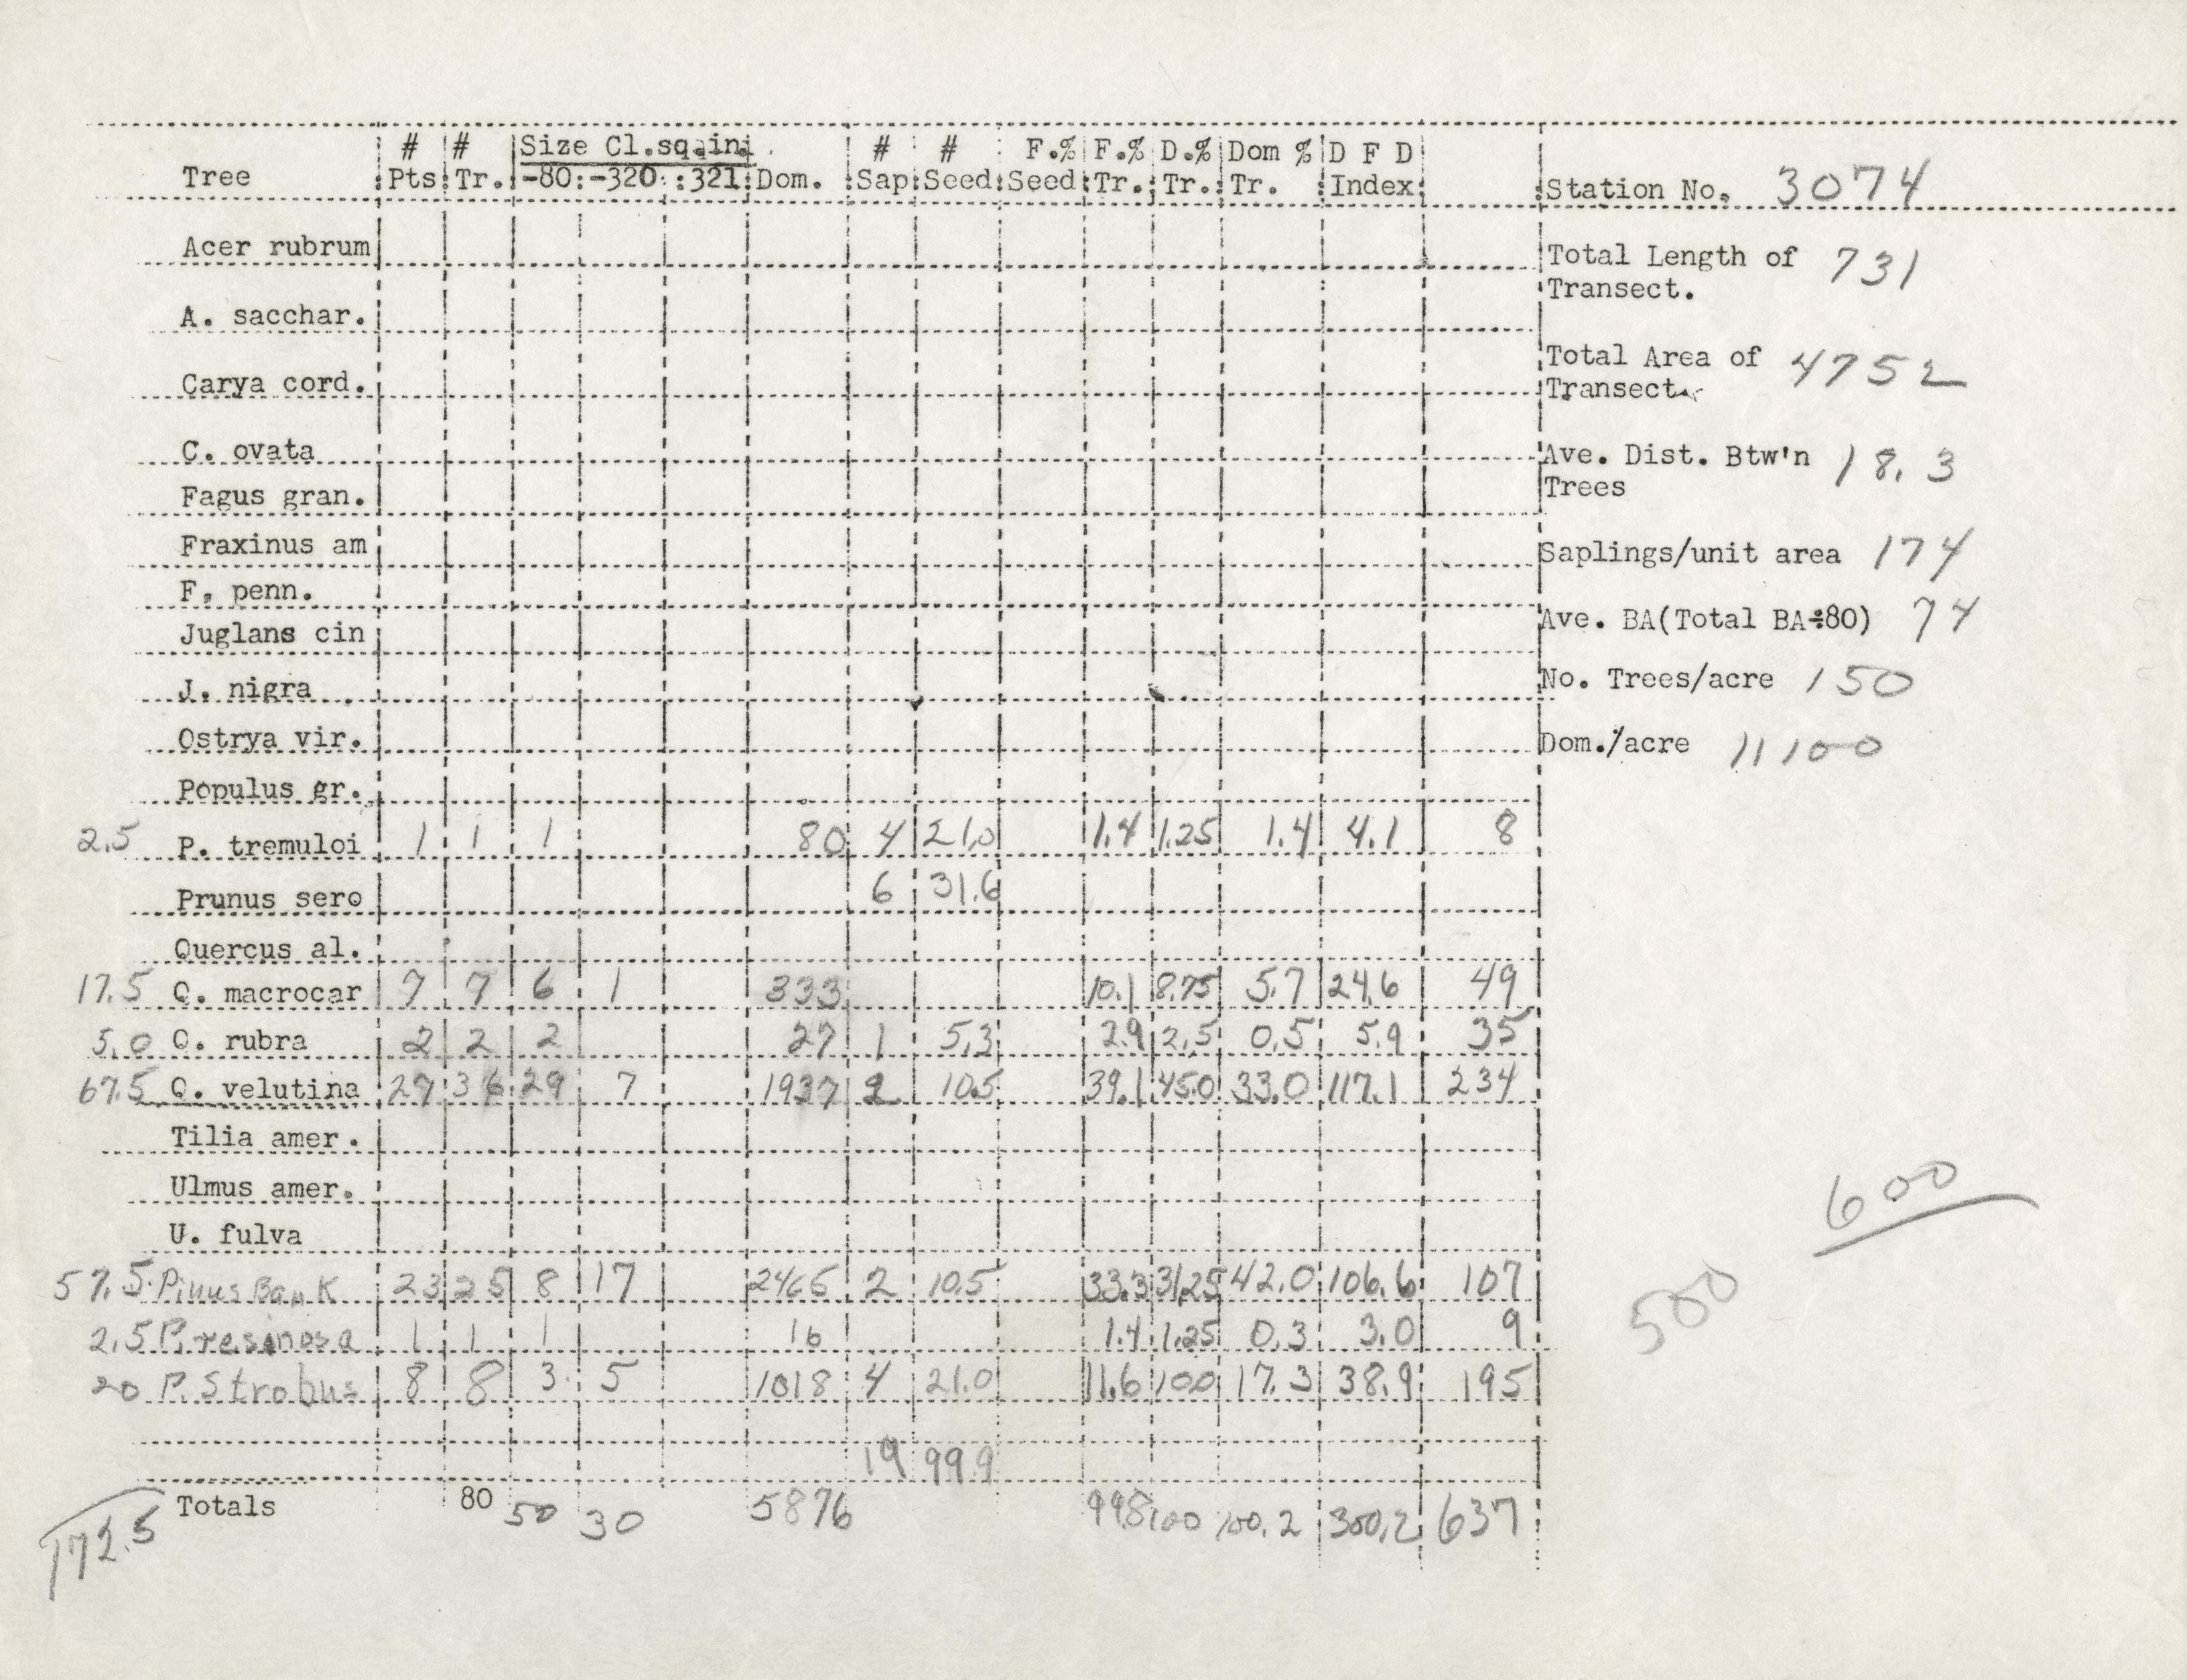 # # Size Cl.sq.in. # # F.% F.% D.% Dom % D F D
Tree Pts Tr. -80: -320 :321: Dom. Sap: Seed: Seed: Tr.: Tr.: Tr. Index: Station No. 3074
Acer rubrum
Total Length of 731
Transect.
A. sacchar.
Total Area of 4752
Transect.
Carya cord.
C. ovata
Ave. Dist. Btw'n 18.3
Trees
Fagus gran.
Fraxinus am
Saplings/unit area 174
F. penn.
Ave. BA(Total BA÷80) 74
Juglans cin
J. nigra
No. Trees/acre 150
Ostrya vir.
Dom./acre 11100
Populus gr.
2.5 P. tremuloi 1 1 1 80 4 21.0 1.4 1.25 1.4 4.1 8
Prunus sero 6 31.6
Quercus al.
17.5 Q. macrocar 7 7 6 1 333 10.1 8.75 5.7 24.6 49
5.0 Q. rubra 2 2 2 27 1 5.3 2.9 2.5 0.5 5.9 35
67.5 Q. velutina 27 36 29 7 1937 2 10.5 39.1 45.0 33.0 117.1 234
Tilia amer.
Ulmus amer.
600
U. fulva
57.5 Pinus Bank 23 25 8 17 2465 2 10.5 33.3 31.25 42.0 106.6 107
500
2.5 P. resinosa 1 1 1 16 1.4 1.25 0.3 3.0 9
20 P. Strobus 8 8 3 5 1018 4 21.0 11.6 10.0 17.3 38.9 195
19 99.9
Totals 80 50 30 5876 99.8 100 100.2 300.2 637
172.5